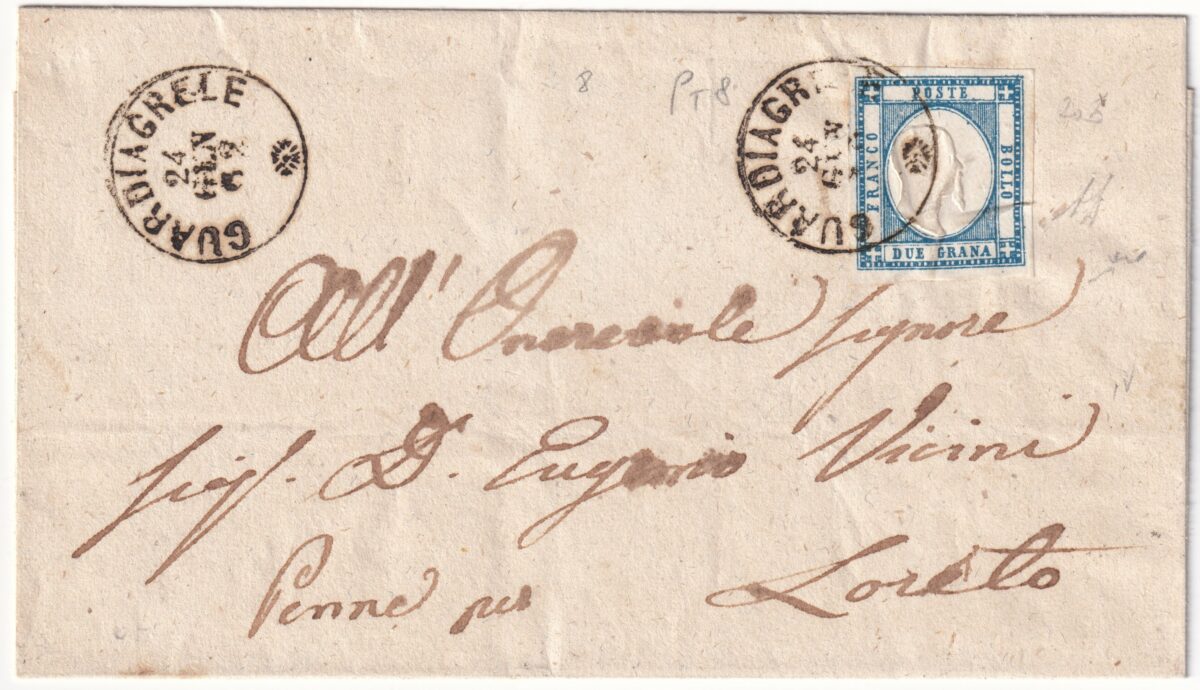 GUARDIAGRELE
24
GEN
62
8
PT 8.
GUARDIAGRELE
24
GEN
POSTE
FRANCO
BOLLO
DUE GRANA
All' Onorevole Signore
Sig. D. Eugenio Vicini
Penne per Loreto